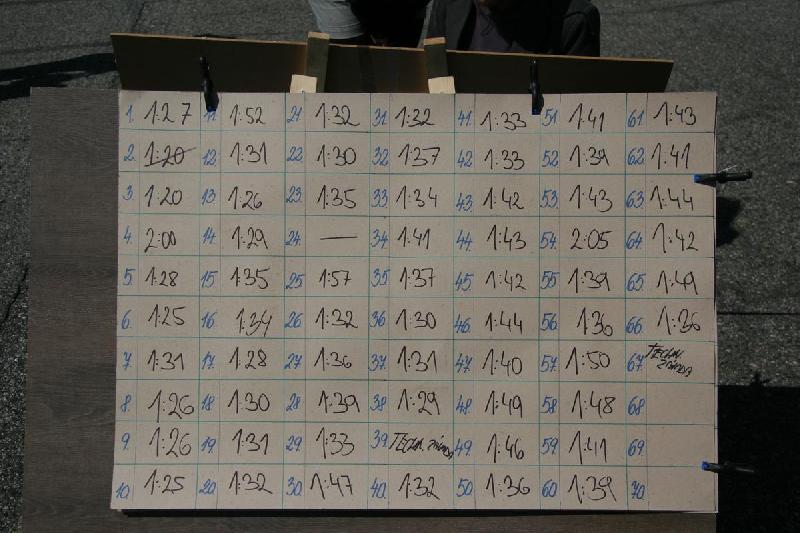 1. 1:27 11. 1:52 21. 1:32 31. 1:32 41. 1:33 51. 1:41 61. 1:43
2. 1:20 12. 1:31 22. 1:30 32. 1:37 42. 1:33 52. 1:39 62. 1:41
3. 1:20 13. 1:26 23. 1:35 33. 1:34 43. 1:42 53. 1:43 63. 1:44
4. 2:00 14. 1:29 24. — 34. 1:41 44. 1:43 54. 2:05 64. 1:42
5. 1:28 15. 1:35 25. 1:57 35. 1:37 45. 1:42 55. 1:39 65. 1:49
6. 1:25 16. 1:34 26. 1:32 36. 1:30 46. 1:44 56. 1:36 66. 1:36
7. 1:31 17. 1:28 27. 1:36 37. 1:31 47. 1:40 57. 1:50 67. TECHN.
8. 1:26 18. 1:30 28. 1:39 38. 1:29 48. 1:49 58. 1:48 68.
9. 1:26 19. 1:31 29. 1:33 39. TECHN. 49. 1:46 59. 1:41 69.
10. 1:25 20. 1:32 30. 1:47 40. 1:32 50. 1:36 60. 1:39 70.